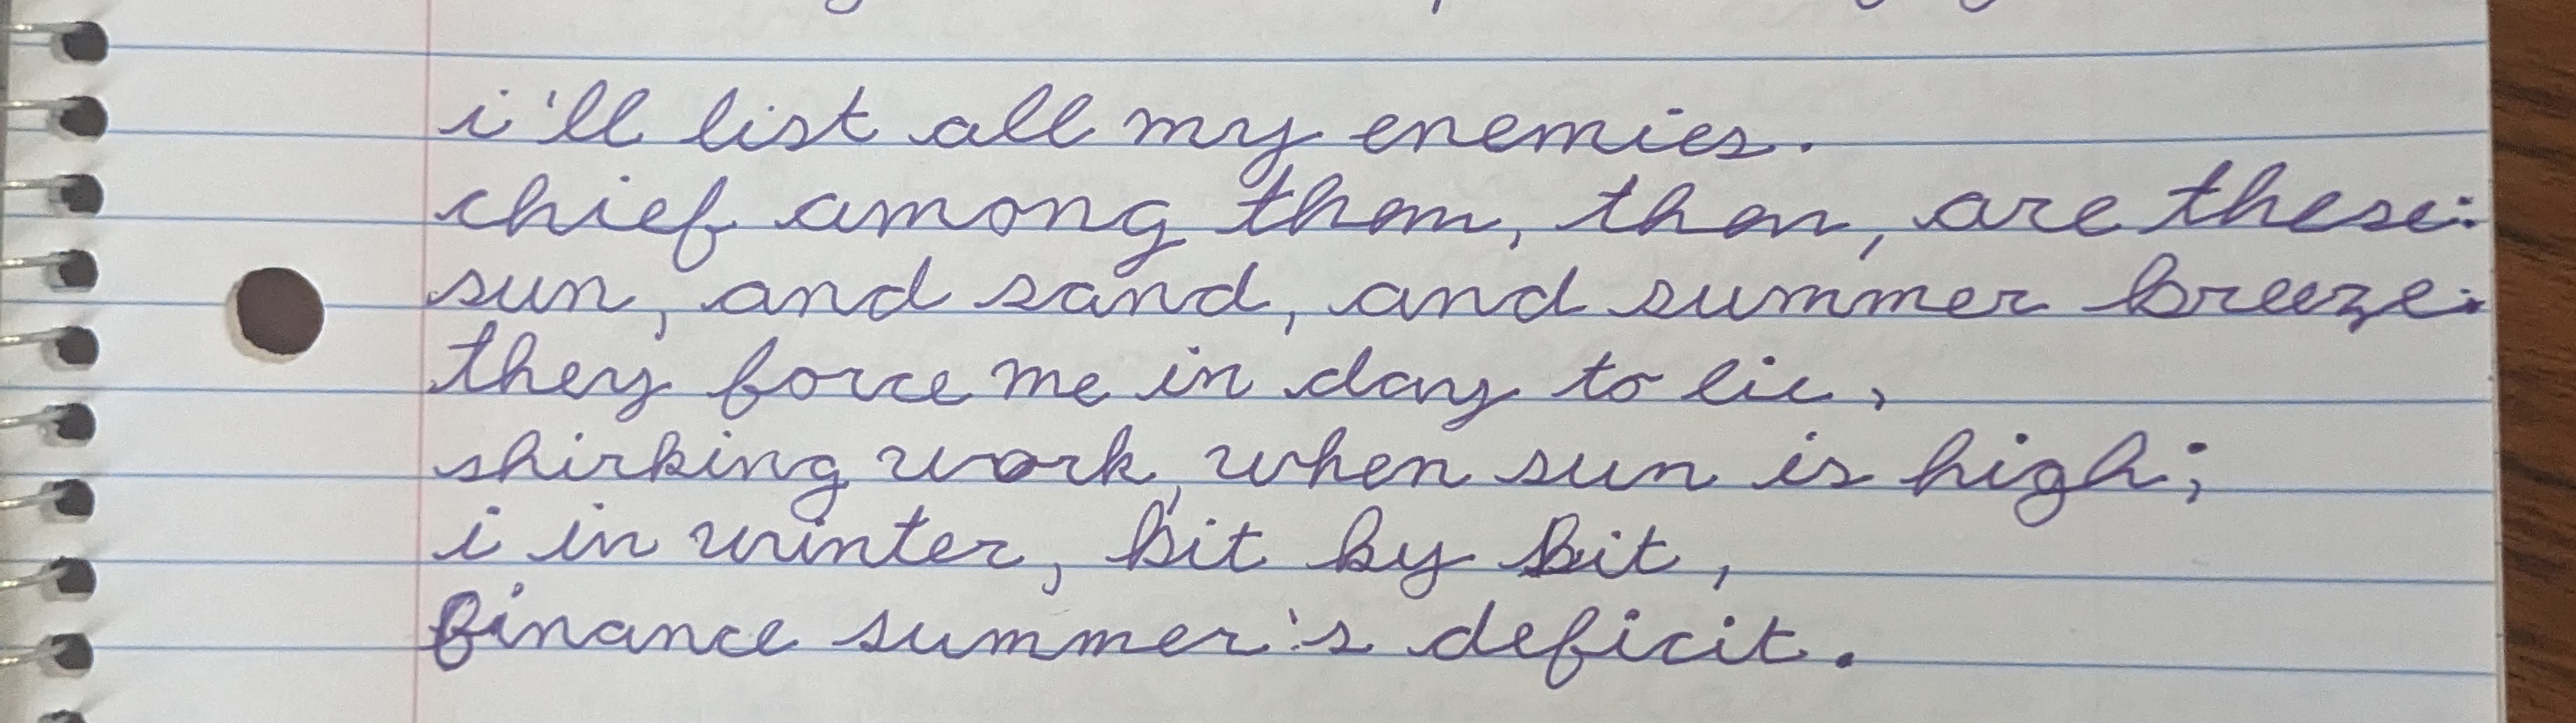 i'll list all my enemies.
chief among them, then, are these:
sun, and sand, and summer breeze.
they force me in day to lie,
shirking work, when sun is high;
i in winter, bit by bit,
finance summer's deficit.